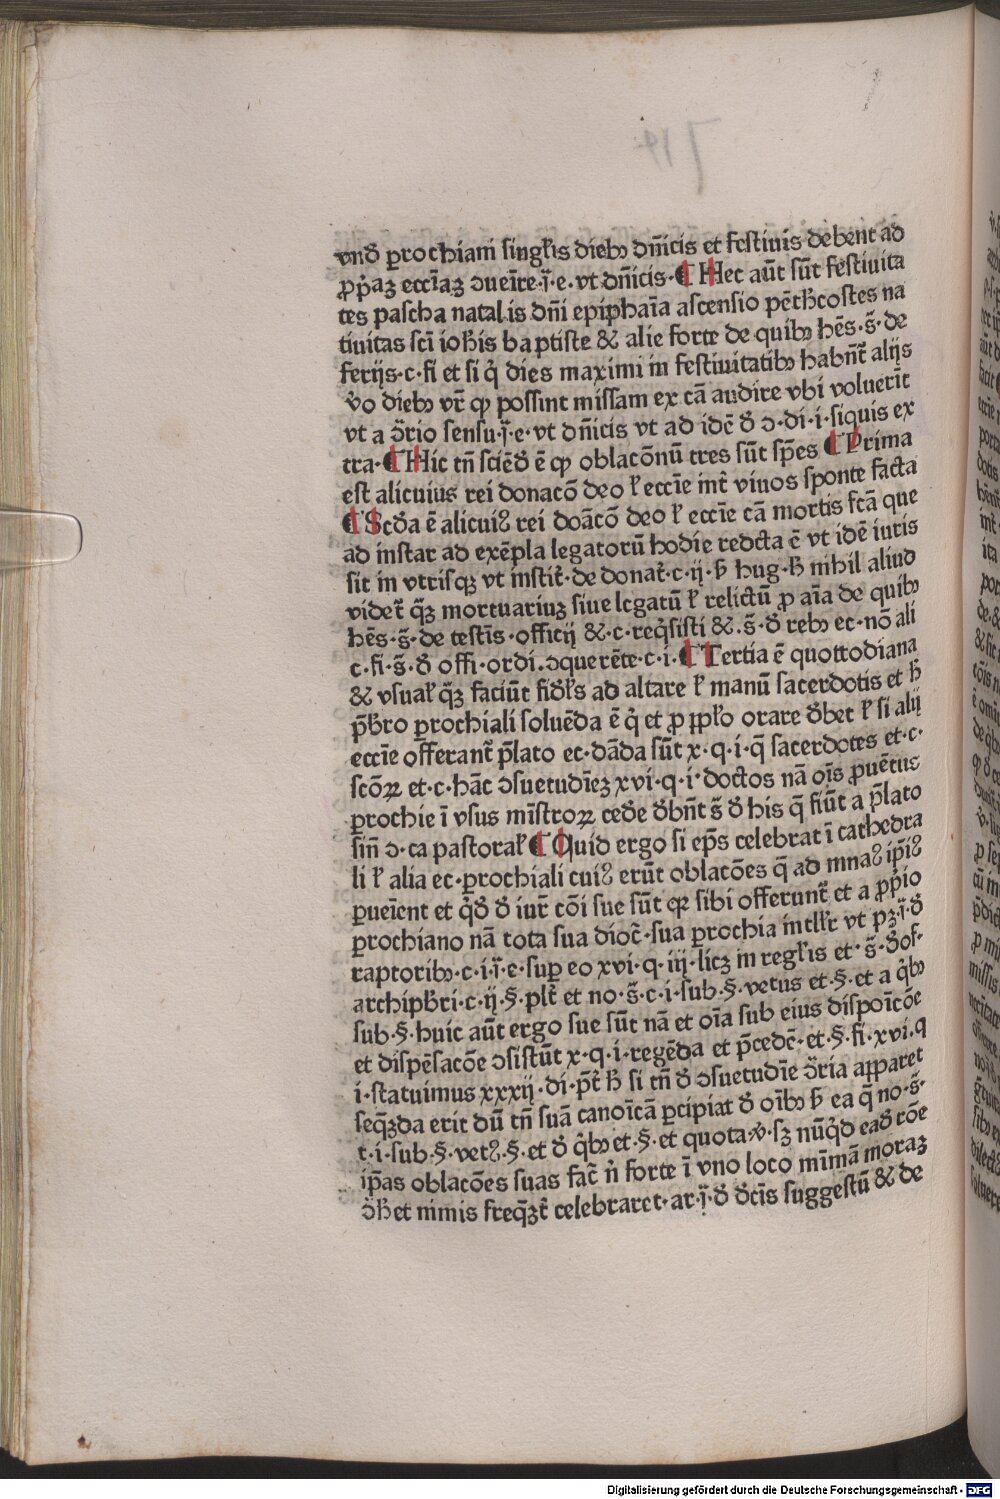 vnđ ꝑrochiam singl̄is dieb⁹ dn̄icis et festiuis debent ad
ꝓp̄aꝫ eccl̄aꝫ ↄueīre · j̄ · e · vt dn̄icis · ¶ Hec aūt sūt festiuita
tes pascha natalis dn̄i epiphaīa ascensio pētħcostes na
tiuitas sc̄i ioħis baptiste & alie forte de quib⁹ hēs · s̄ · de
ferijs · c · fi et si q̇ dies maximi in festiuitatib⁹ habn̄t̄ alijs
v̊o dieb⁹ vr̄ ꝙ possint missam ex cā audire vbi voluerīt
vt a ↄ̄rio sensu · j̄ · e · vt dn̄icis vt ad idē đ ↄ · di · i · siquis ex
tra · ¶ Hic tn̄ sciēđ ē ꝙ oblacōnū tres sūt sp̄es ¶ Prima
est alicuius rei donacō deo ł eccīe int̄ viuos sponte facta
¶ Scđa ē alicuiꝰ rei doācō deo ł eccīe cā mortis fcā que
ad instar ad exēpla legatorū hodie redcta ē vt idē iuris
sit in vtrisqꝫ vt instit̄ · de donat̄ · c · ij · ƀ hug · ħ nihil aliud
videt̄ q̄ꝫ mortuariuꝫ siue legatū ł relictū ꝓ aīa de quib⁹
hēs · s̄ · de testīs · officij & · c · req̇sisti & · s̄ · đ reb⁹ ec · nō ali
c · fi · s̄ · đ offi · ordi · ↄquerēte · c · i · ¶ Tertia ē quottodiana
& vsual̄ q̄ꝫ faciūt fiđl̄s ad altare ł manū sacerdotis et ħ
p̄ƀro ꝑrochiali soluēda ē q̇ et ꝓ ꝓpl̄o orare đbet ł si alij
eccīe offerant̄ p̄lato ec · dāda sūt x · q · i · q̄ sacerdotes et · c ·
scōꝝ et · c · hāc ↄsuetudīeꝫ xvi · q · i · doctos nā oīs ꝓuētus
ꝑrochie ī vsus mīstroꝝ ceđe đbn̄t s̄ đ his q̄ fiūt a p̄lato
sin̄ ↄ · ca pastoral̄ ¶ Quid ergo si ep̄s celebrat ī cathedra
li ł alia ec · ꝑrochiali cuiꝰ erūt oblacōes q̄ ad mnaꝰ ip̄iꝰ
ꝑueīent et q̇đ đ iur̄ cōi sue sūt qꝛ sibi offerunt̄ et a ꝓp̄io
ꝑrochiano nā tota sua dioc̄ · sua ꝑrochia intllr̄ vt pꝫ · j̄ · đ
raptorib⁹ · c · i · j̄ · e · suꝑ eo xvi · q · iij · licꝫ in regl̄is et · s̄ · đ of ·
archipƀri · c · ij · § · plt̄ et no · s̄ · c · i · sub · § · vetus et · § · et a q̇b⁹
sub · § · huic aūt ergo sue sūt nā et oīa sub eius dispoīcōe
et dispēsacōe ↄsistūt x · q · i · regēda et p̄cedē · et · § · fi · xvi · q
i · statuimus xxxij · di · p̄t̄ ħ si tn̄ đ ↄsuetudīe ↄ̄ria apparet
seq̄ꝫda erit dū tn̄ suā canoīcā ꝑcipiat đ oīb⁹ ƀ ea q̄ no · s̄ ·
t · i · sub · § · vetꝰ · § · et đ q̇b⁹ et · § · et quota · v̊ · sꝫ nūq̇d eađ rōe
ip̄as oblacōes suas fac̄ n̄ forte ī vno loco mīmā moraꝫ
ↄħet nimis freq̄ꝫt̄ celebraret · ar · j̄ · đ đcīs suggestū & de